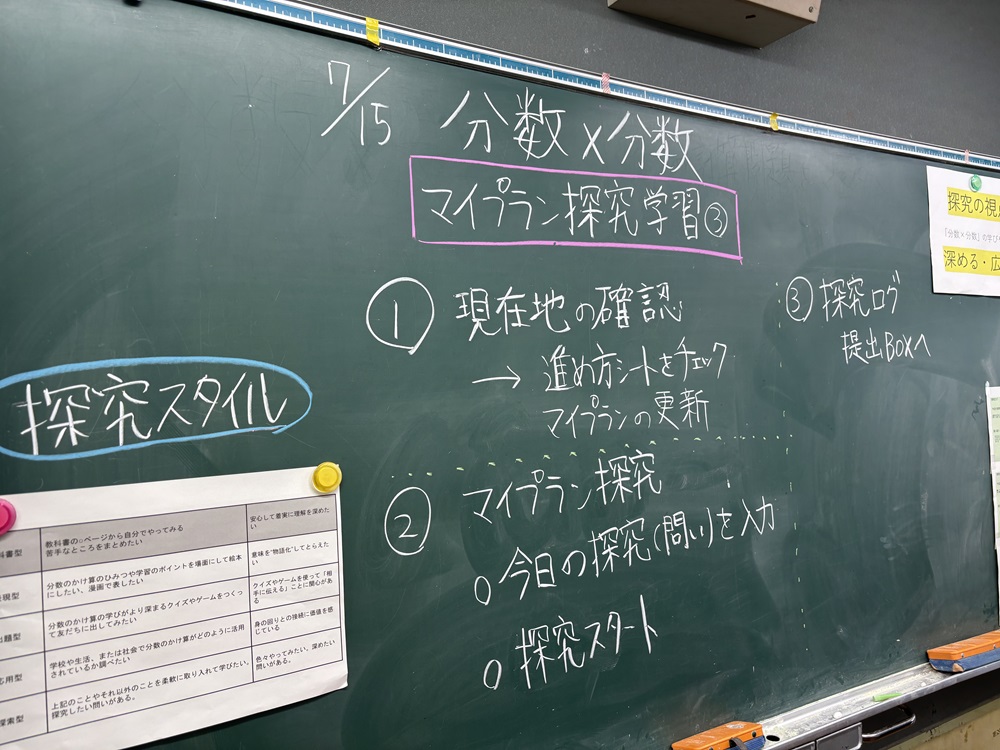 7/15 分数×分数
マイプラン探究学習③
① 現在地の確認
→ 進め方シートをチェック
マイプランの更新
② マイプラン探究
○今日の探究(問い)を入力
○探究スタート
③探究ログ
提出BOXへ
探究スタイル
教科書の○ページから自分でやってみる
苦手なところをまとめたい
安心して着実に理解を深めたい
分数のかけ算のひみつや学習のポイントを場面にして絵本にしたい、漫画で表したい
意味を"物語化"してとらえたい
分数のかけ算の学びがより深まるクイズやゲームをつくって友だちに出してみたい
クイズやゲームを使って「相手に伝える」ことに関心がある
学校や生活、または社会で分数のかけ算がどのように活用されているか調べたい
身の回りとの接続に価値を感じている
上記のことやそれ以外のことを柔軟に取り入れて学びたい。探究したい問いがある。
色々やってみたい。深めたい問いがある。
探究の視
「分数×分数」の学び
深める・広